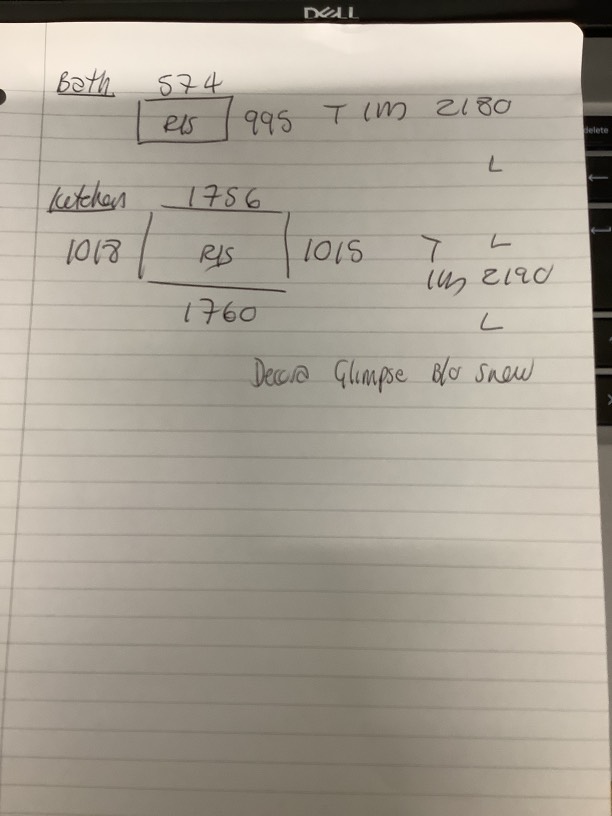 DELL
delete
Bath 574
R/S 995 T 1M 2180
L
Kitchen 1756
1018 R/S 1015 T L
1M 2190
1760 L
Decora Glimpse B/O Snow